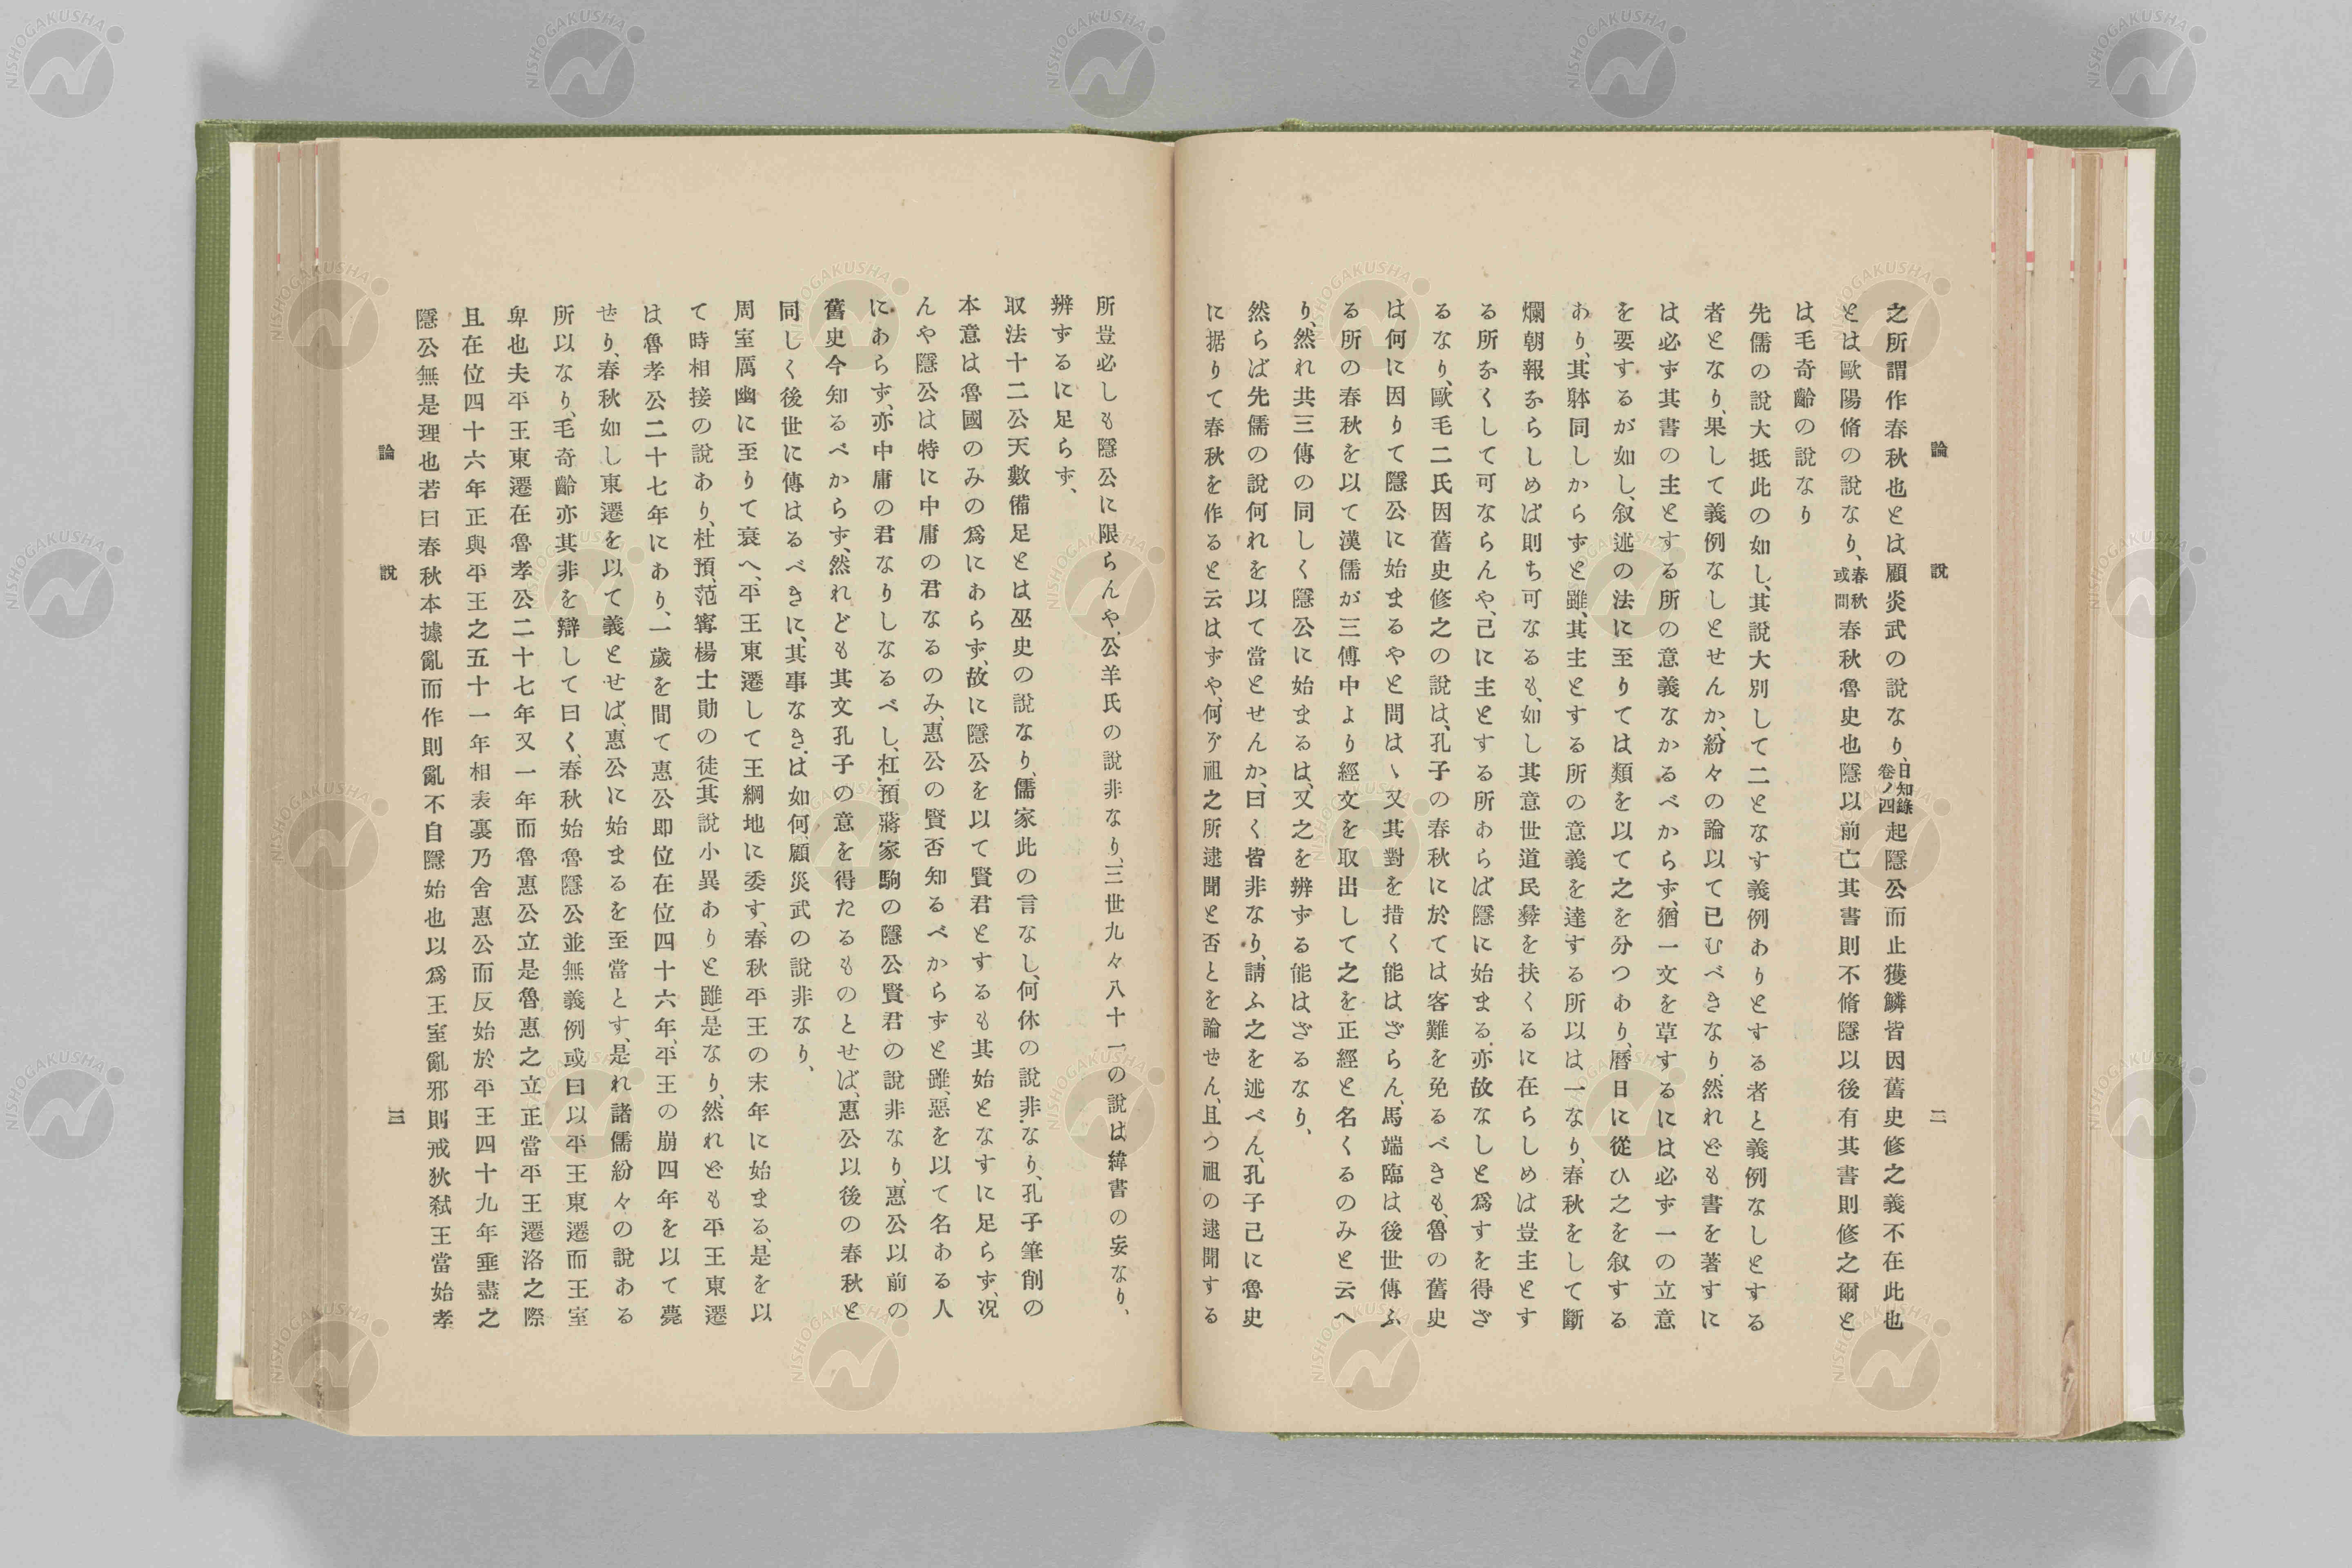 論　說　二
之所謂作春秋也とは顧炎武の說なり、日知錄卷ノ四起隱公而止獲麟皆因舊史修之義不在此也
とは歐陽脩の說なり、春秋或問春秋魯史也隱以前亡其書則不脩隱以後有其書則修之爾と
は毛奇齡の說なり
先儒の說大抵此の如し、其說大別して二となす義例ありとする者と義例なしとする
者となり、果して義例なしとせんか、紛々の論以て已むべきなり、然れども書を著すに
は必ず其書の主とする所の意義なかるべからず、猶一文を草するには必ず一の立意
を要するが如し、叙述の法に至りては類を以て之を分つあり、曆日に從ひ之を叙する
あり、其躰同しからずと雖、其主とする所の意義を達する所以は一なり、春秋をして斷
爛朝報ならしめば則ち可なるも、如し其意世道民彝を扶くるに在らしめは豈主とす
る所なくして可ならんや、己に主とする所あらば隱に始まる、亦故なしと爲すを得ざ
るなり、歐毛二氏因舊史修之の說は、孔子の春秋に於ては客難を免るべきも、魯の舊史
は何に因りて隱公に始まるやと問はゝ又其對を措く能はざらん、馬端臨は後世傳ふ
る所の春秋を以て漢儒が三傳中より經文を取出して之を正經と名くるのみと云へ
り、然れ共三傳の同しく隱公に始まるは、又之を辨ずる能はざるなり、
然らば先儒の說何れを以て當とせんか、曰く皆非なり、請ふ之を述べん、孔子己に魯史
に据りて春秋を作ると云はずや、何ぞ祖之所逮聞と否とを論せん、且つ祖の逮聞する
所豈必しも隱公に限らんや、公羊氏の說非なり、三世九々八十一の說は緯書の妄なり、
辨ずるに足らず、
取法十二公天數備足とは巫史の說なり、儒家此の言なし、何休の說非なり、孔子筆削の
本意は魯國のみの爲にあらず、故に隱公を以て賢君とするも其始となすに足らず、况
んや隱公は特に中庸の君なるのみ、惠公の賢否知るべからずと雖、惡を以て名ある人
にあらず、亦中庸の君なりしなるべし、杜預、蔣家駒の隱公賢君の說非なり、惠公以前の
舊史今知るべからず、然れども其文孔子の意を得たるものとせば、惠公以後の春秋と
同しく後世に傳はるべきに、其事なきは如何、顧炎武の說非なり、
周室厲幽に至りて衰へ、平王東遷して王綱地に委す、春秋平王の末年に始まる、是を以
て時相接の說あり、杜預、范寗楊士勛の徒(其說小異ありと雖)是なり、然れども平王東遷
は魯孝公二十七年にあり、一歲を間て惠公即位在位四十六年、平王の崩四年を以て薨
せり、春秋如し東遷を以て義とせば、惠公に始まるを至當とす、是れ諸儒紛々の說ある
所以なり、毛奇齡亦其非を辯して曰く、春秋始魯隱公並無義例或曰以平王東遷而王室
卑也夫平王東遷在魯孝公二十七年又一年而魯惠公立是魯惠之立正當平王遷洛之際
且在位四十六年正與平王之五十一年相表裏乃舍惠公而反始於平王四十九年垂盡之
隱公無是理也若曰春秋本據亂而作則亂不自隱始也以爲王室亂邪則戒狄弑王當始孝
論　說　三